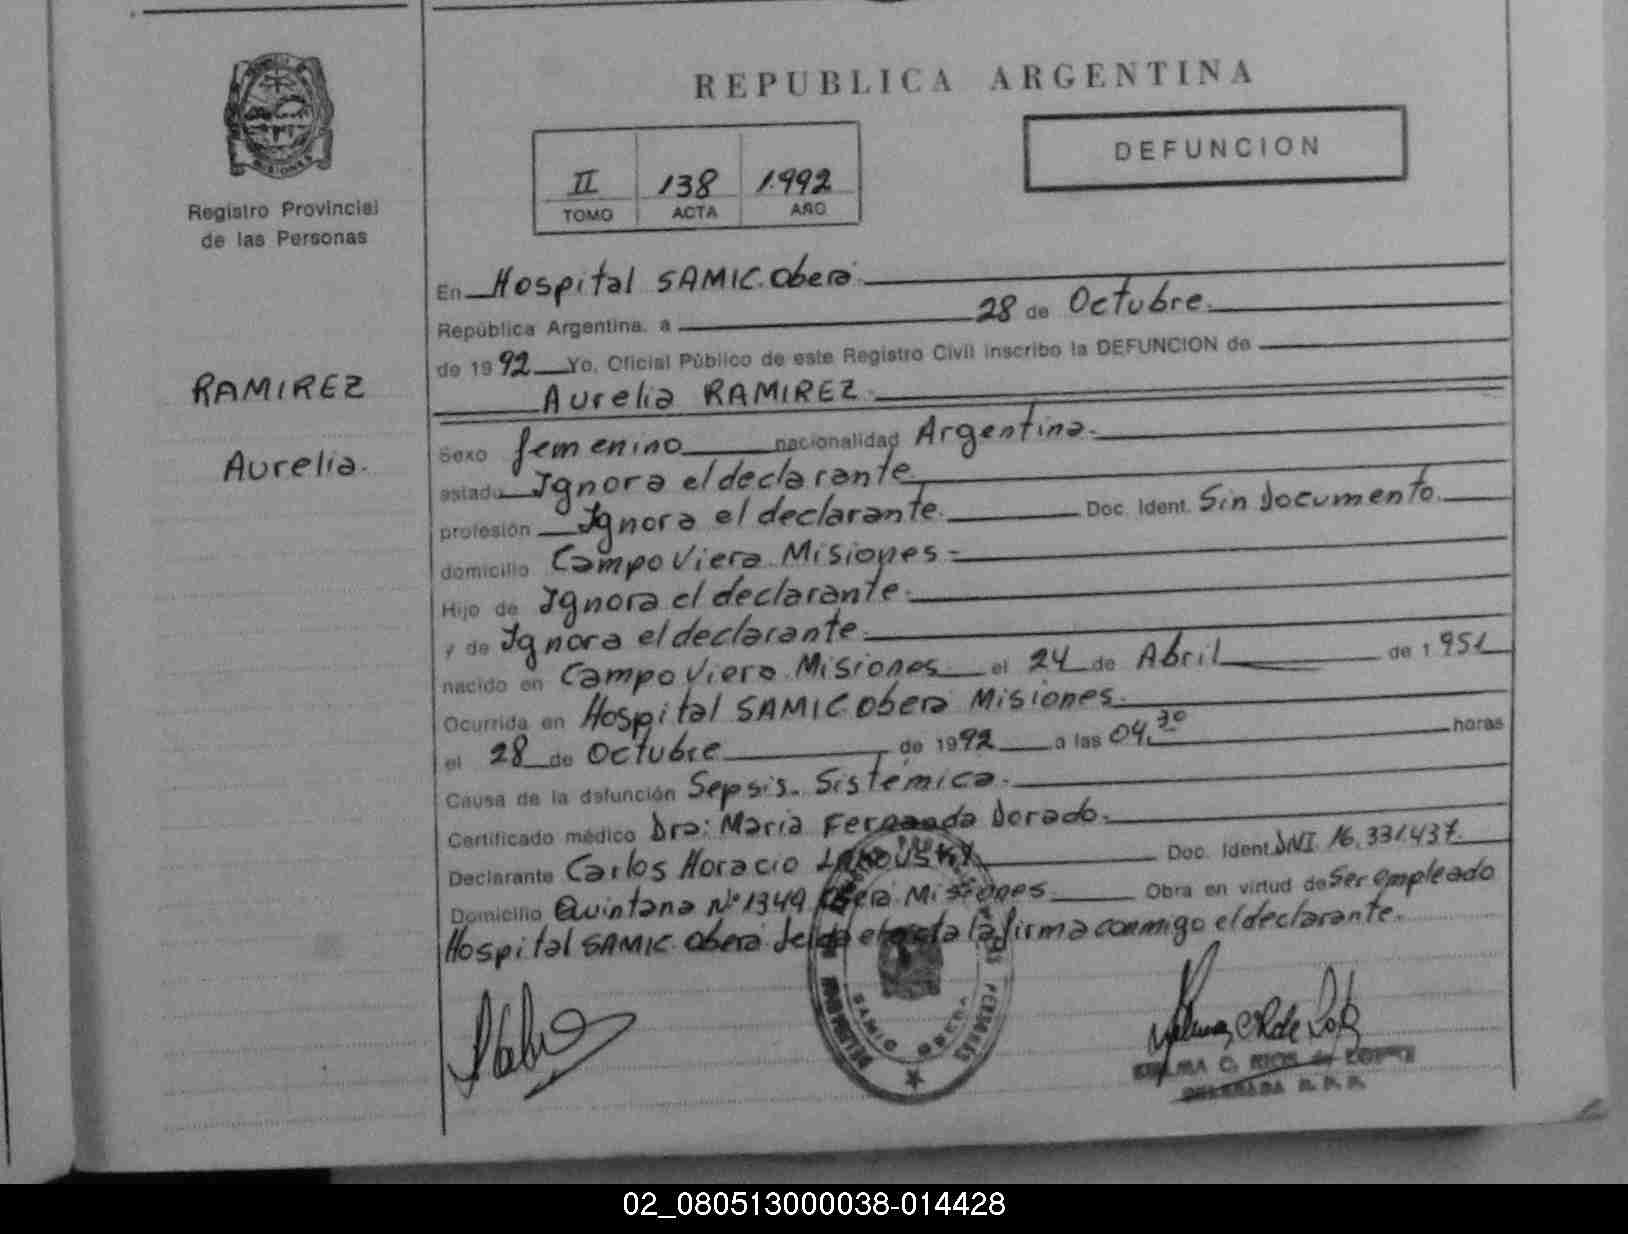 REPUBLICA ARGENTINA
DEFUNCION
II 138 1.992
TOMO ACTA AÑO
MISIONES
Registro Provincial
de las Personas
RAMIREZ
Aurelia.
En Hospital SAMIC. Oberá
República Argentina, a 28 de Octubre.
de 1992 Yo, Oficial Público de este Registro Civil inscribo la DEFUNCION de
Aurelia RAMIREZ
Sexo femenino nacionalidad Argentina.
estado Ignora el declarante
profesión Ignora el declarante. Doc. Ident. Sin documento.
domicilio Campo Viera Misiones
Hijo de Ignora el declarante.
y de Ignora el declarante.
nacido en Campo Viera Misiones el 24 de Abril de 1951
Ocurrida en Hospital SAMIC Oberá Misiones.
el 28 de Octubre de 1992 a las 04,30 horas
Causa de la defunción Sepsis. Sistémica.
Certificado médico Dra: María Fernanda Dorado.
Declarante Carlos Horacio Doc. Ident. DNI. 16.331.437.
Domicilio Quintana Nº 1349 Oberá Misiones Obra en virtud de Ser empleado
Hospital SAMIC Oberá leída el acta la firma conmigo el declarante.
SAMIC OBERA
C. RIOS de
DELEGADA R. P. P.
02_080513000038-014428